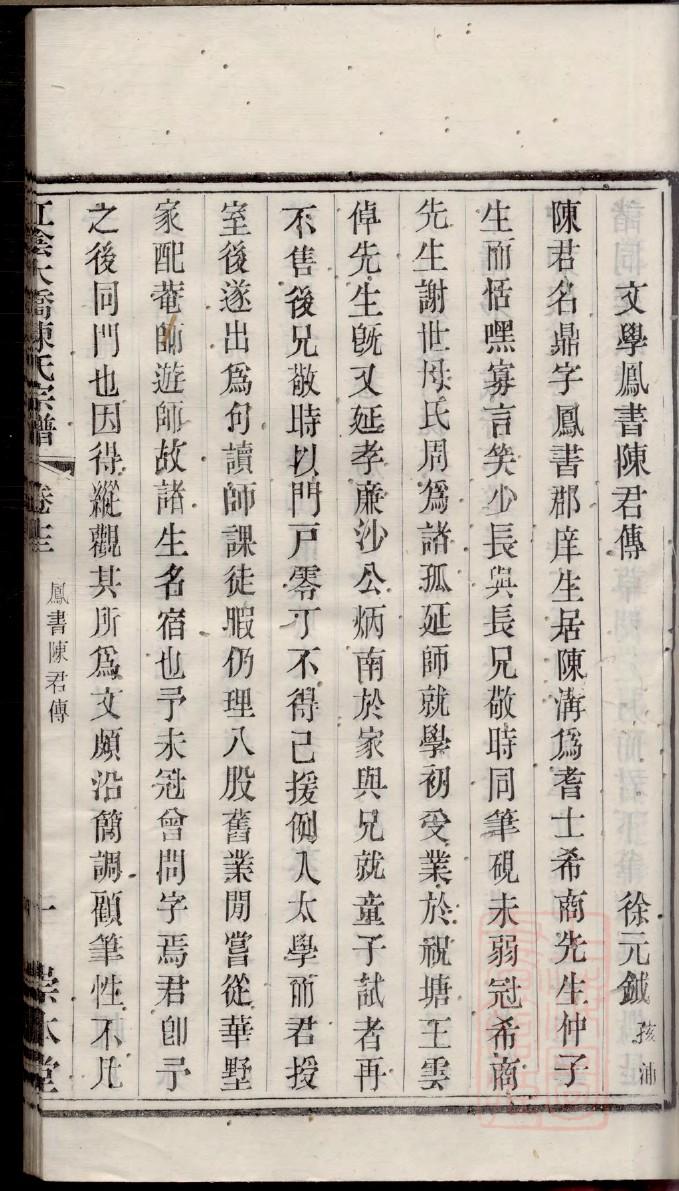 文學鳳書陳君傳 徐元鉞 孩沛
陳君名鼎字鳳書郡庠生居陳溝為耆士希商先生仲子
生而恬嘿寡言笑少長與長兄敬時同筆硯未弱冠希商
先生謝世母氏周為諸孤延師就學初受業於祝塘王雲
倬先生旣又延孝廉沙公炳南於家與兄就童子試者再
不售後兄敬時以門戸零丁不得已援例入太學而君授
室後遂出為句讀師課徒暇仍理八股舊業閒嘗從華墅
家配菴師遊師故諸生名宿也予未冠曾問字焉君卽予
之後同門也因得縱觀其所為文頗沿簡調顧筆性不凡
江陰大橋陳氏宗譜 卷 鳳書陳君傳 一 崇本堂